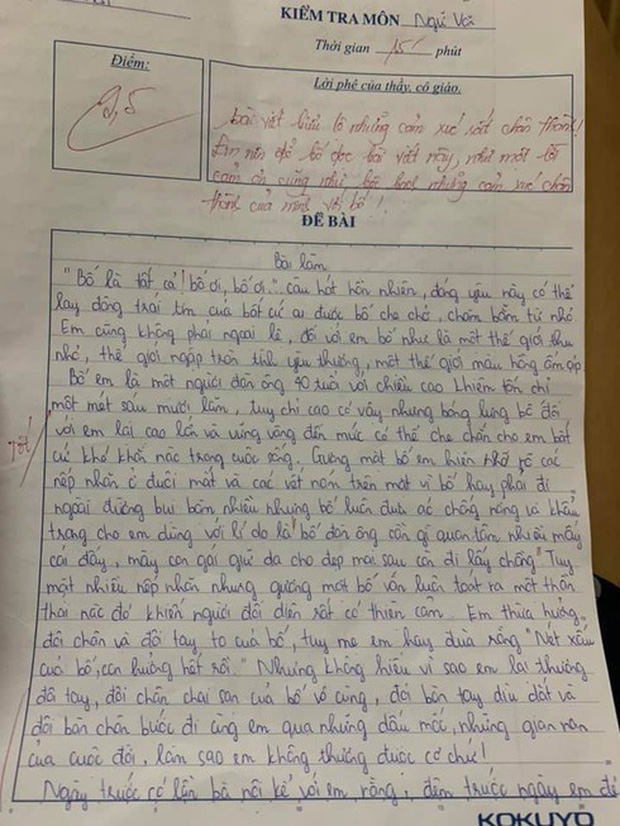 KIỂM TRA MÔN Ngữ Văn
Thời gian 15' phút
Điểm:
Lời phê của thầy, cô giáo.
9,5
bài viết biểu lộ những cảm xúc rất chân thành!
Em nên để bố đọc bài viết này, như một lời
cảm ơn cũng như bộc bạch những cảm xúc chân
thành của mình với bố!
ĐỀ BÀI
Bài làm
"Bố là tất cả! bố ơi, bố ơi.." câu hát hồn nhiên, đáng yêu này có thể
lay động trái tim của bất cứ ai được bố che chở, chăm bẵm từ nhỏ
Em cũng không phải ngoại lệ, đối với em bố như là một thế giới thu
nhỏ, thế giới ngập tràn tình yêu thương, một thế giới màu hồng ấm áp.
Bố em là một người đàn ông 40 tuổi với chiều cao khiêm tốn chỉ
một mét sáu mươi lăm, tuy chỉ cao có vậy nhưng bóng lưng bố đối
tốt
với em lại cao lớn và vững vàng đến mức có thể che chắn cho em bất
cứ khó khăn nào trong cuộc sống. Gương mặt bố em hiện rõ các
nếp nhăn ở đuôi mắt và các vết nám trên mặt vì bố hay phải đi
ngoài đường bụi bặm nhiều nhưng bố luôn đưa áo chống nắng và khẩu
trang cho em dùng với lí do là "bố đàn ông cần gì quan tâm nhiều mấy
cái đấy, mày con gái giữ da cho đẹp mai sau còn đi lấy chồng" Tuy
mặt nhiều nếp nhăn nhưng gương mặt bố vẫn luôn toát ra một thần
thái nào đó khiến người đối diện rất có thiện cảm. Em thừa hưởng
đôi chân và đôi tay to của bố, tuy mẹ em hay đùa rằng "Nét xấu
của bố, con hưởng hết rồi." Nhưng không hiểu vì sao em lại thương
đôi tay, đôi chân chai sạn của bố vô cùng, đôi bàn tay dìu dắt và
đôi bàn chân bước đi cùng em qua những dấu mốc, những gian nan
của cuộc đời, làm sao em không thương được cơ chứ!
Ngày trước có lần bà nội kể với em rằng, đêm trước ngày em đẻ
KOKUYO